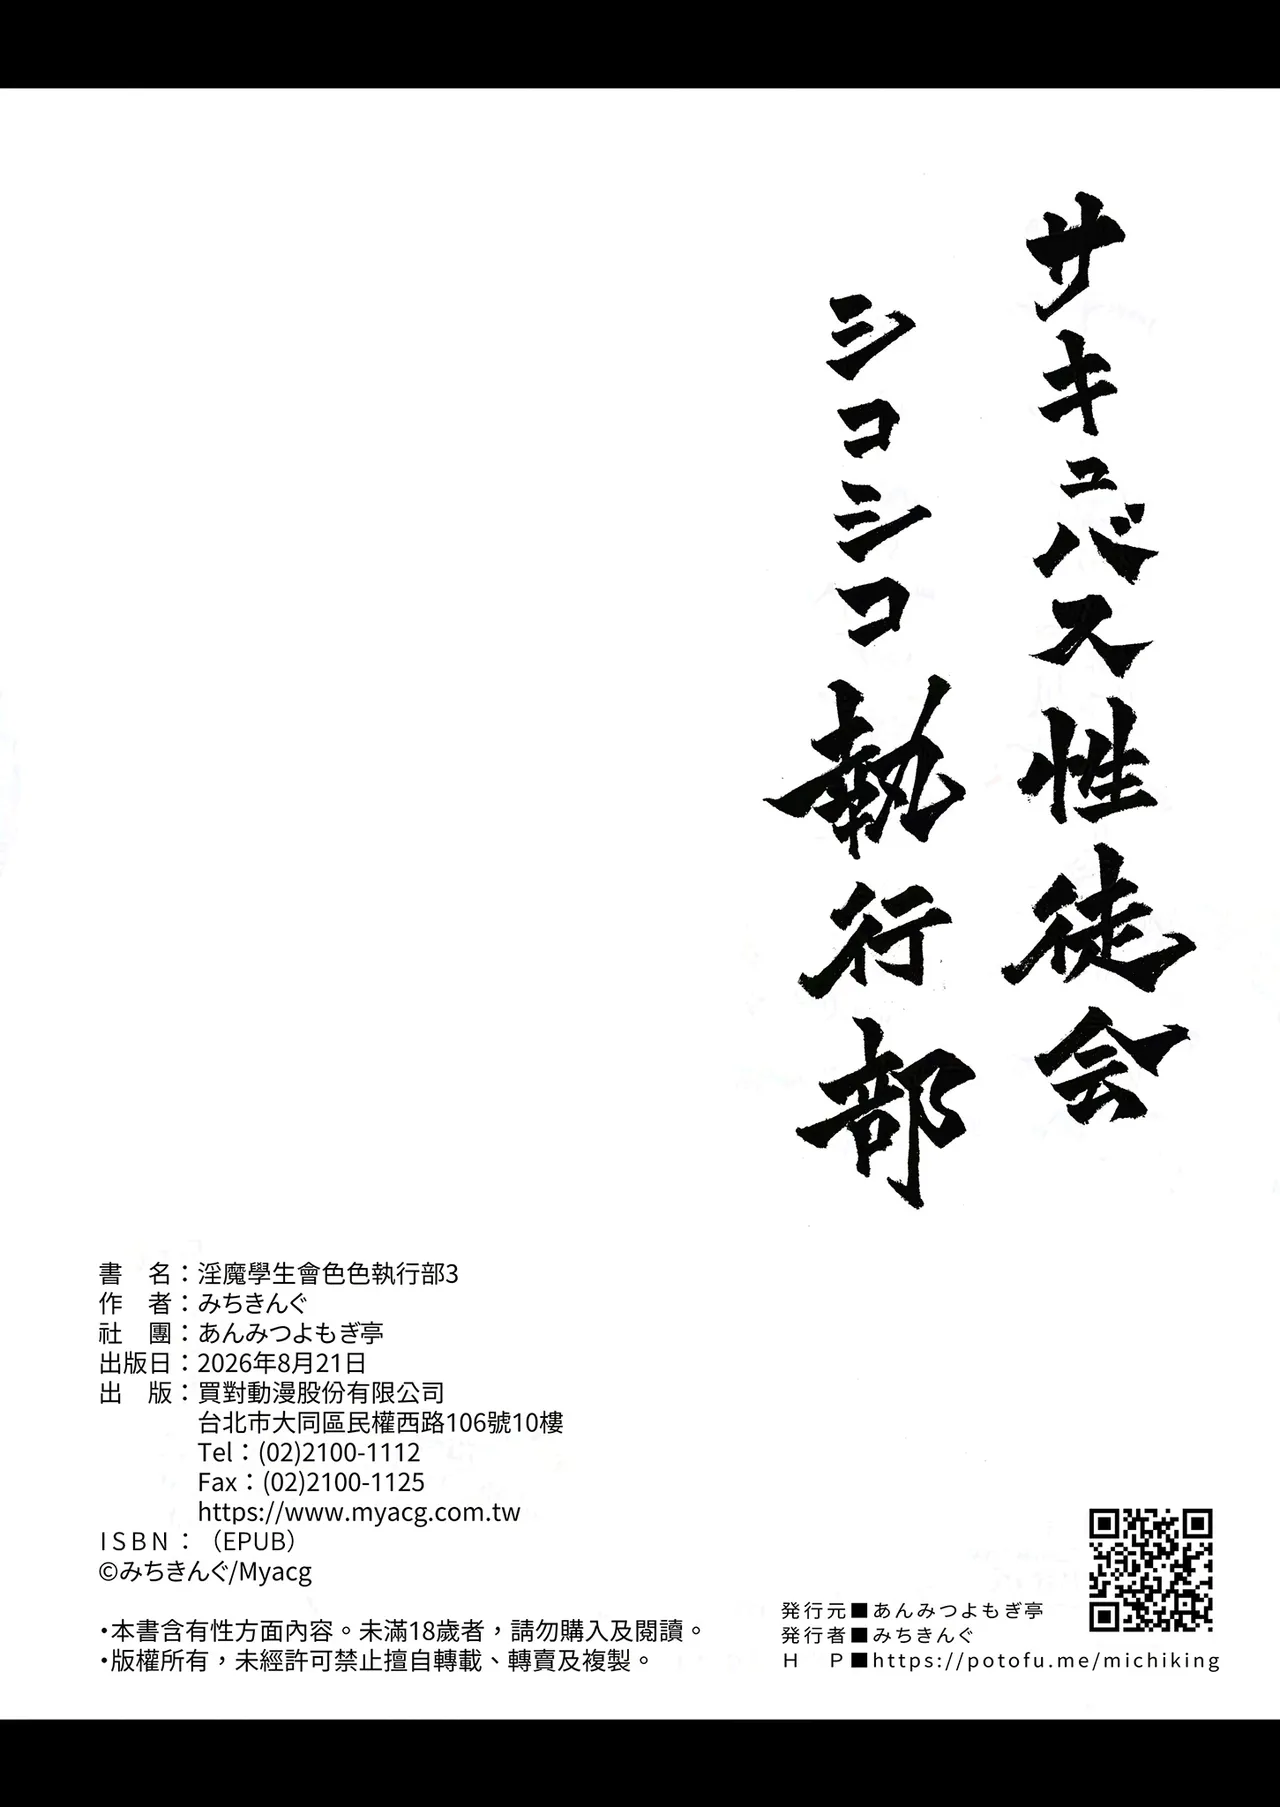 サキュバス性徒会
シコシコ執行部
書　名：淫魔學生會色色執行部3
作　者：みちきんぐ
社　團：あんみつよもぎ亭
出版日：2026年8月21日
出　版：買對動漫股份有限公司
台北市大同區民權西路106號10樓
Tel：(02)2100-1112
Fax：(02)2100-1125
https://www.myacg.com.tw
ISBN：（EPUB）
©みちきんぐ/Myacg
・本書含有性方面內容。未滿18歲者，請勿購入及閱讀。
・版權所有，未經許可禁止擅自轉載、轉賣及複製。
発行元■あんみつよもぎ亭
発行者■みちきんぐ
Ｈ　Ｐ■https://potofu.me/michiking